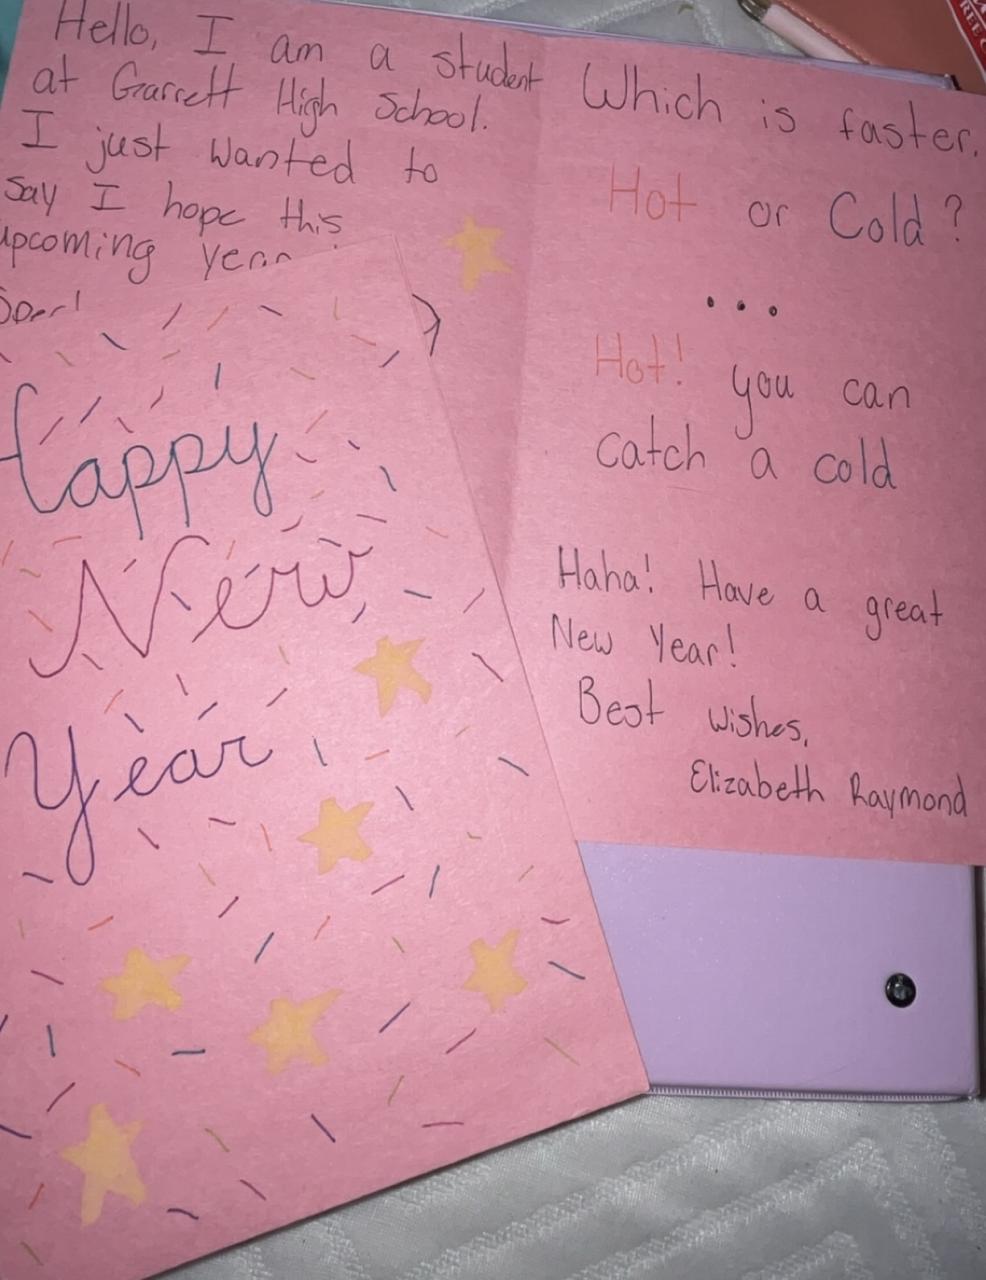 Hello, I am a student
at Garrett High School.
I just wanted to
say I hope this
upcoming year
Happy
New
Year
Which is faster,
Hot or Cold?
...
Hot! you can
catch a cold
Haha! Have a great
New Year!
Best wishes,
Elizabeth Raymond